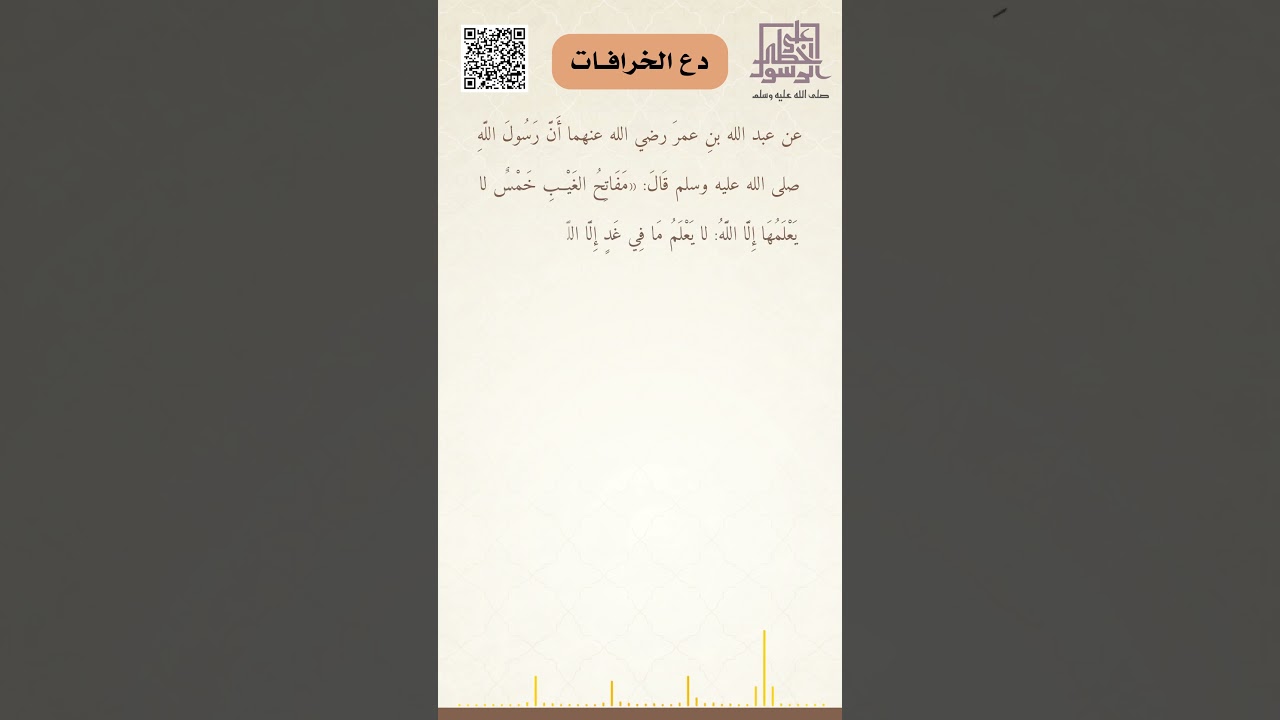 دع الخرافات
على خطى الرسول
صلى الله عليه وسلم
عن عبد الله بنِ عمرَ رضي الله عنهما أَنَّ رَسُولَ اللَّهِ
صلى الله عليه وسلم قَالَ: «مَفَاتِحُ الغَيْبِ خَمْسٌ لا
يَعْلَمُهَا إِلَّا اللَّهُ: لا يَعْلَمُ مَا فِي غَدٍ إِلَّا اللّ